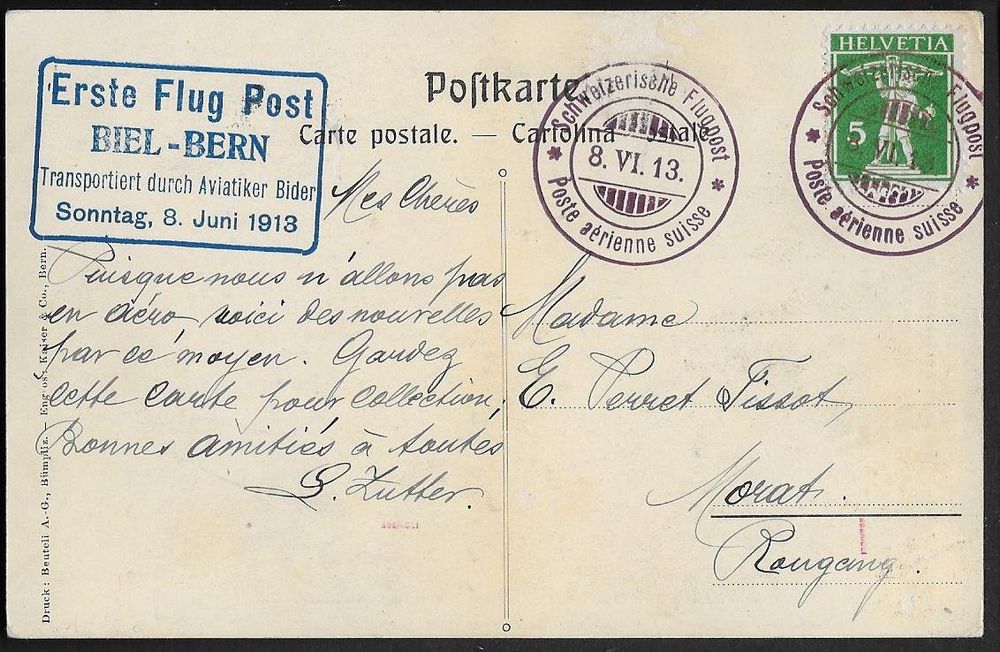 Erste Flug Post
BIEL-BERN
Transportiert durch Aviatiker Bider
Sonntag, 8. Juni 1913
Postkarte
Carte postale. — Cartolina postale
Schweizerische Flugpost
8. VI. 13.
Poste aérienne suisse
HELVETIA
5
Schweizerische Flugpost
8. VI. 13
Poste aérienne suisse
Mes Chères
Puisque nous n'allons pas
en aéro, voici des nouvelles
par ce moyen. Gardez
cette carte pour collection.
Bonnes amitiés à toutes
S. Zutter.
Madame
E. Perret Tissot
Morat.
Rougang.
Druck: Benteli A.-G., Bümpliz. — Eng os: Kaiser & Co., Bern.